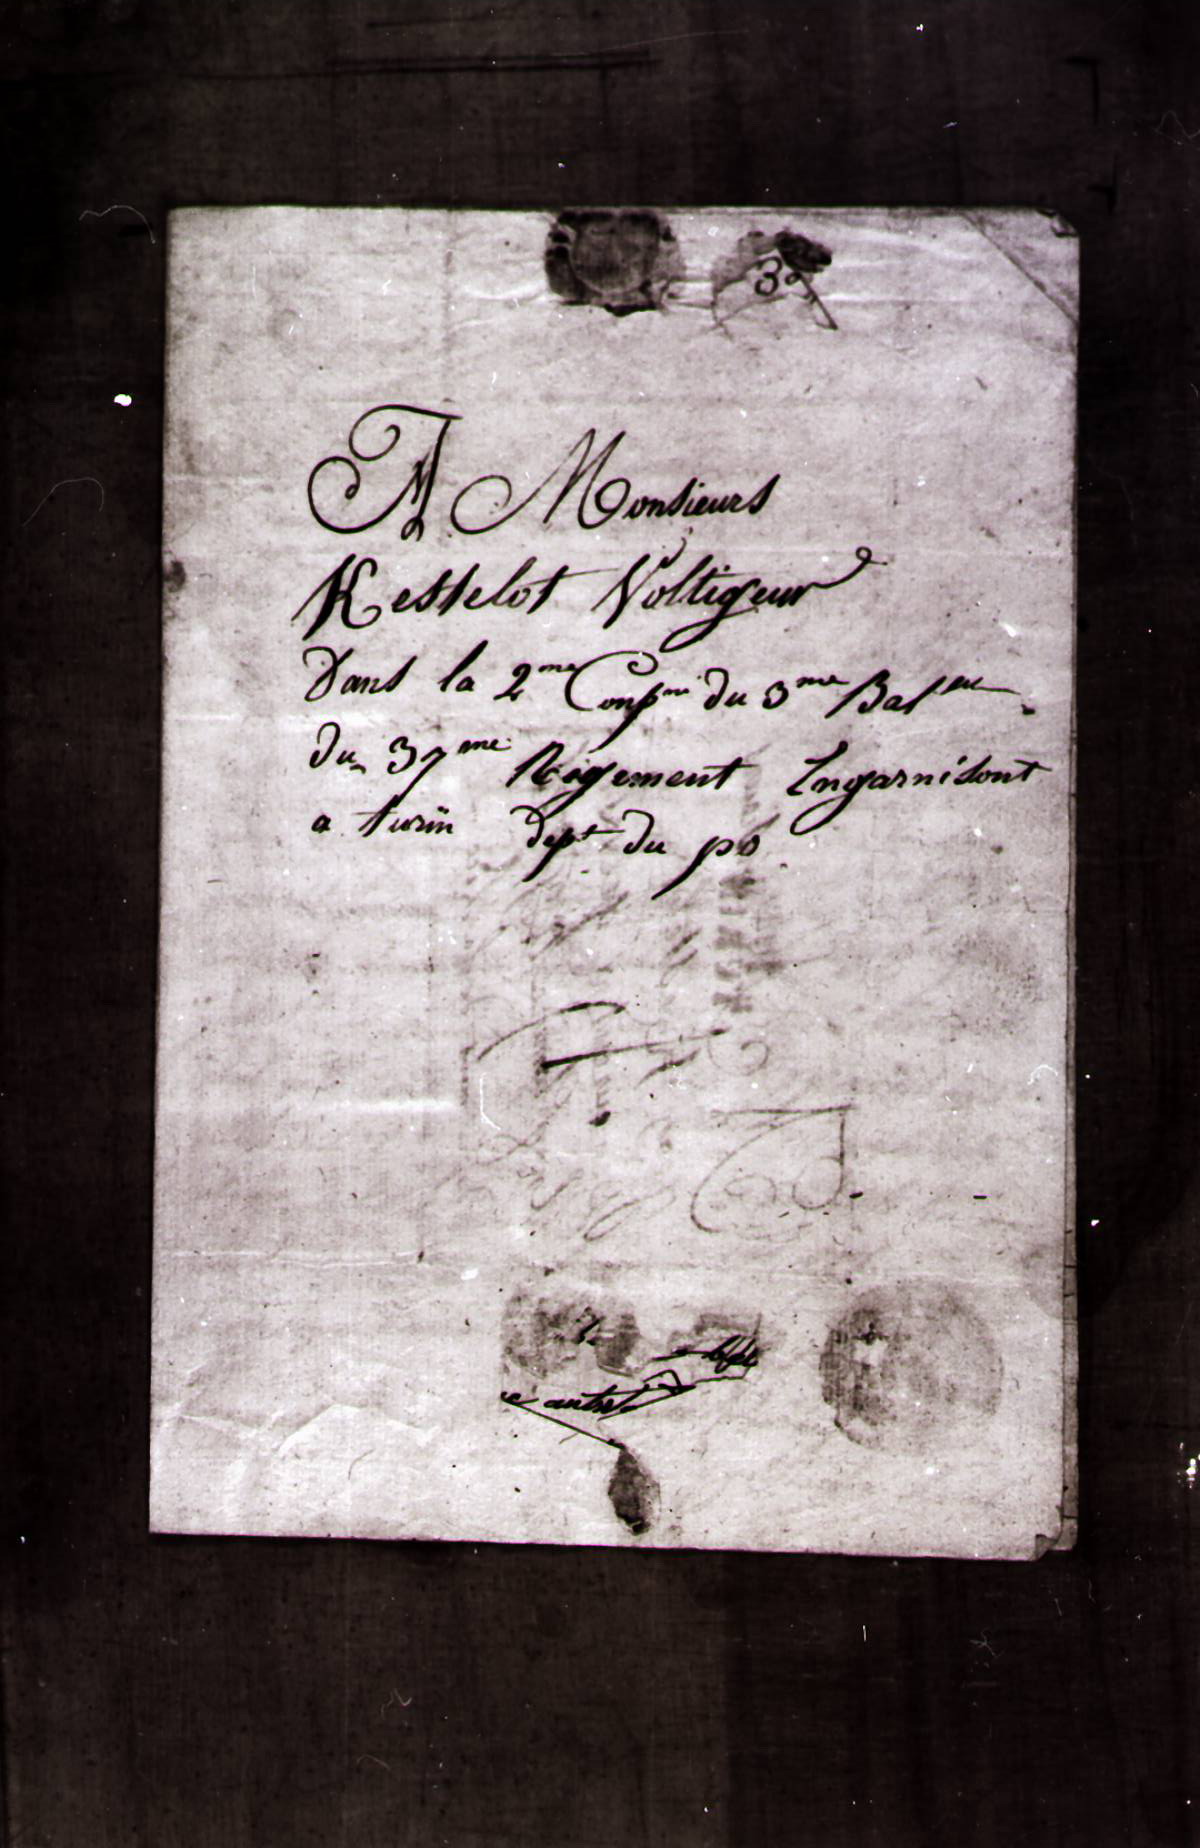 3
A Monsieurs
Kesselot Voltigeur
Dans la 2me Conpni du 3me Bat
du 37me Regement Ingarnisont
a turin dept du po